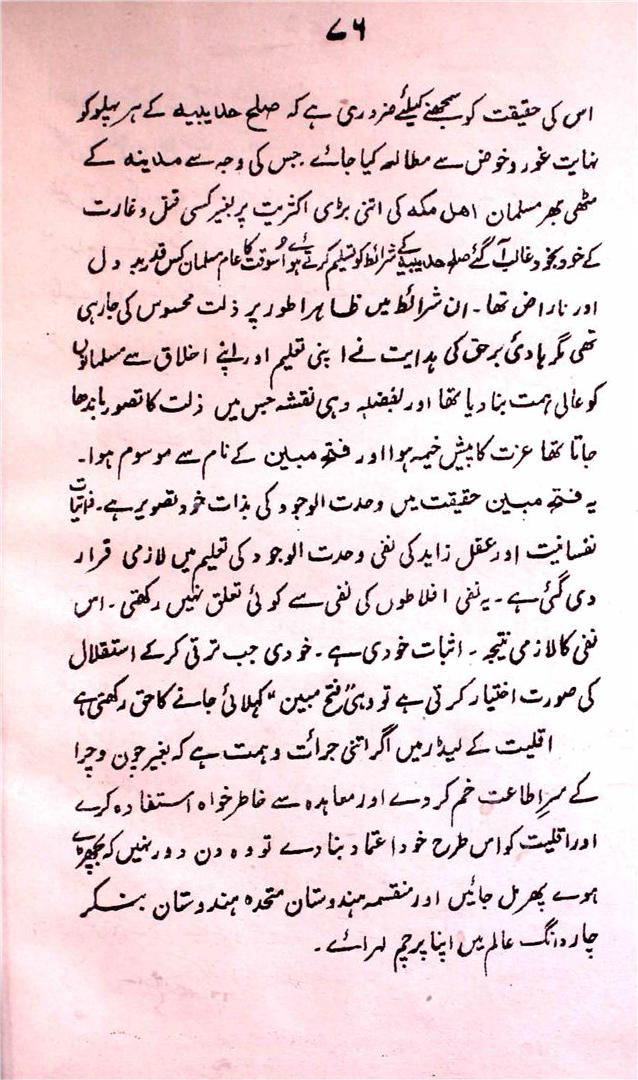 ۷۶
اس کی حقیقت کو سمجھنے کیلئے ضروری ہے کہ صلح حدیبیہ کے ہر پہلو کو
نہایت غور و خوض سے مطالعہ کیا جائے جس کی وجہ سے مدینہ کے
مٹھی بھر مسلمان اہل مکہ کی اتنی بڑی اکثریت پر بغیر کسی قتل و غارت
کے خود بخود غالب آ گئے صلح حدیبیہ کے شرائط کو تسلیم کرتے ہوئے اُسوقت کا عام مسلمان کس قدر بد دل
اور ناراض تھا۔ ان شرائط میں ظاہرا طور پر ذلت محسوس کی جا رہی
تھی مگر ہادئ برحق کی ہدایت نے اپنی تعلیم اور اپنے اخلاق سے مسلمانوں
کو عالی ہمت بنا دیا تھا اور بفضلہ وہی نقشہ جس میں ذلت کا تصور باندھا
جاتا تھا عزت کا پیش خیمہ ہوا اور فتح مبین کے نام سے موسوم ہوا۔
یہ فتح مبین حقیقت میں وحدت الوجود کی بذات خود تصویر ہے۔ ذاتیات
نفسانیت اور عقل زاید کی نفی وحدت الوجود کی تعلیم میں لازمی قرار
دی گئی ہے۔ یہ نفی افلاطوں کی نفی سے کوئی تعلق نہیں رکھتی۔ اس
نفی کا لازمی نتیجہ۔ اثبات خودی ہے۔ خودی جب ترقی کر کے استقلال
کی صورت اختیار کرتی ہے تو وہی "فتح مبین" کہلائی جانے کا حق رکھتی ہے
اقلیت کے لیڈر میں اگر اتنی جرائت و ہمت ہے کہ بغیر چون و چرا
کے سرِ اطاعت خم کر دے اور معاہدہ سے خاطر خواہ استفادہ کرے
اور اقلیت کو اس طرح خود اعتماد بنا دے تو وہ دن دور نہیں کہ بچھڑے
ہوے پھر مل جائیں اور منقسمہ ہندوستان متحدہ ہندوستان بنکر
چار دانگ عالم میں اپنا پرچم لہرائے۔